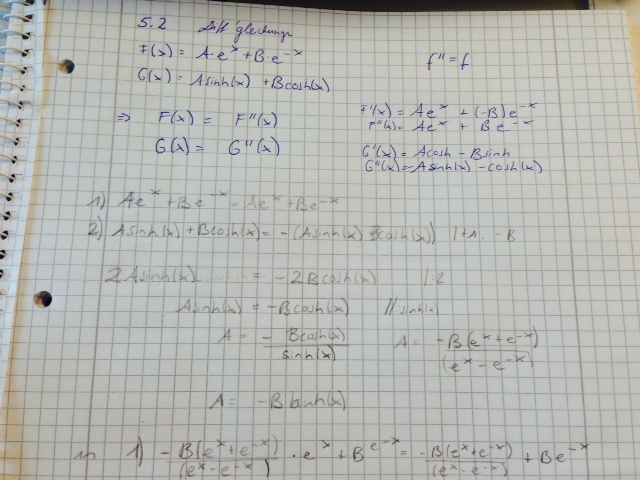 5.2 Diff'gleichunge
F(x) = A·e^x + B·e^-x
f'' = f
G(x) = A sinh(x) + B cosh(x)
F'(x) = Ae^x + (-B)e^-x
⇒ F(x) = F''(x)
F''(x) = Ae^x + Be^-x
G(x) = G''(x)
G'(x) = A cosh - B sinh
G''(x) = -A sinh(x) - cosh(x)
1) Ae^x + Be^-x = Ae^x + Be^-x
2) A sinh(x) + B cosh(x) = -(A sinh(x) Bcosh(x)) | +A. -B
2 A sinh(x) = -2B cosh(x) | :2
A sinh(x) = -B cosh(x) // sinh(x)
A = - Bcosh(x) / sinh(x) A = -B(e^x + e^-x) / (e^x - e^-x)
A = -B tanh(x)
in 1) - B(e^x + e^-x) / (e^x - e^-x) · e^x + B e^-x = -B(e^x + e^-x) / (e^x - e^-x) + Be^-x